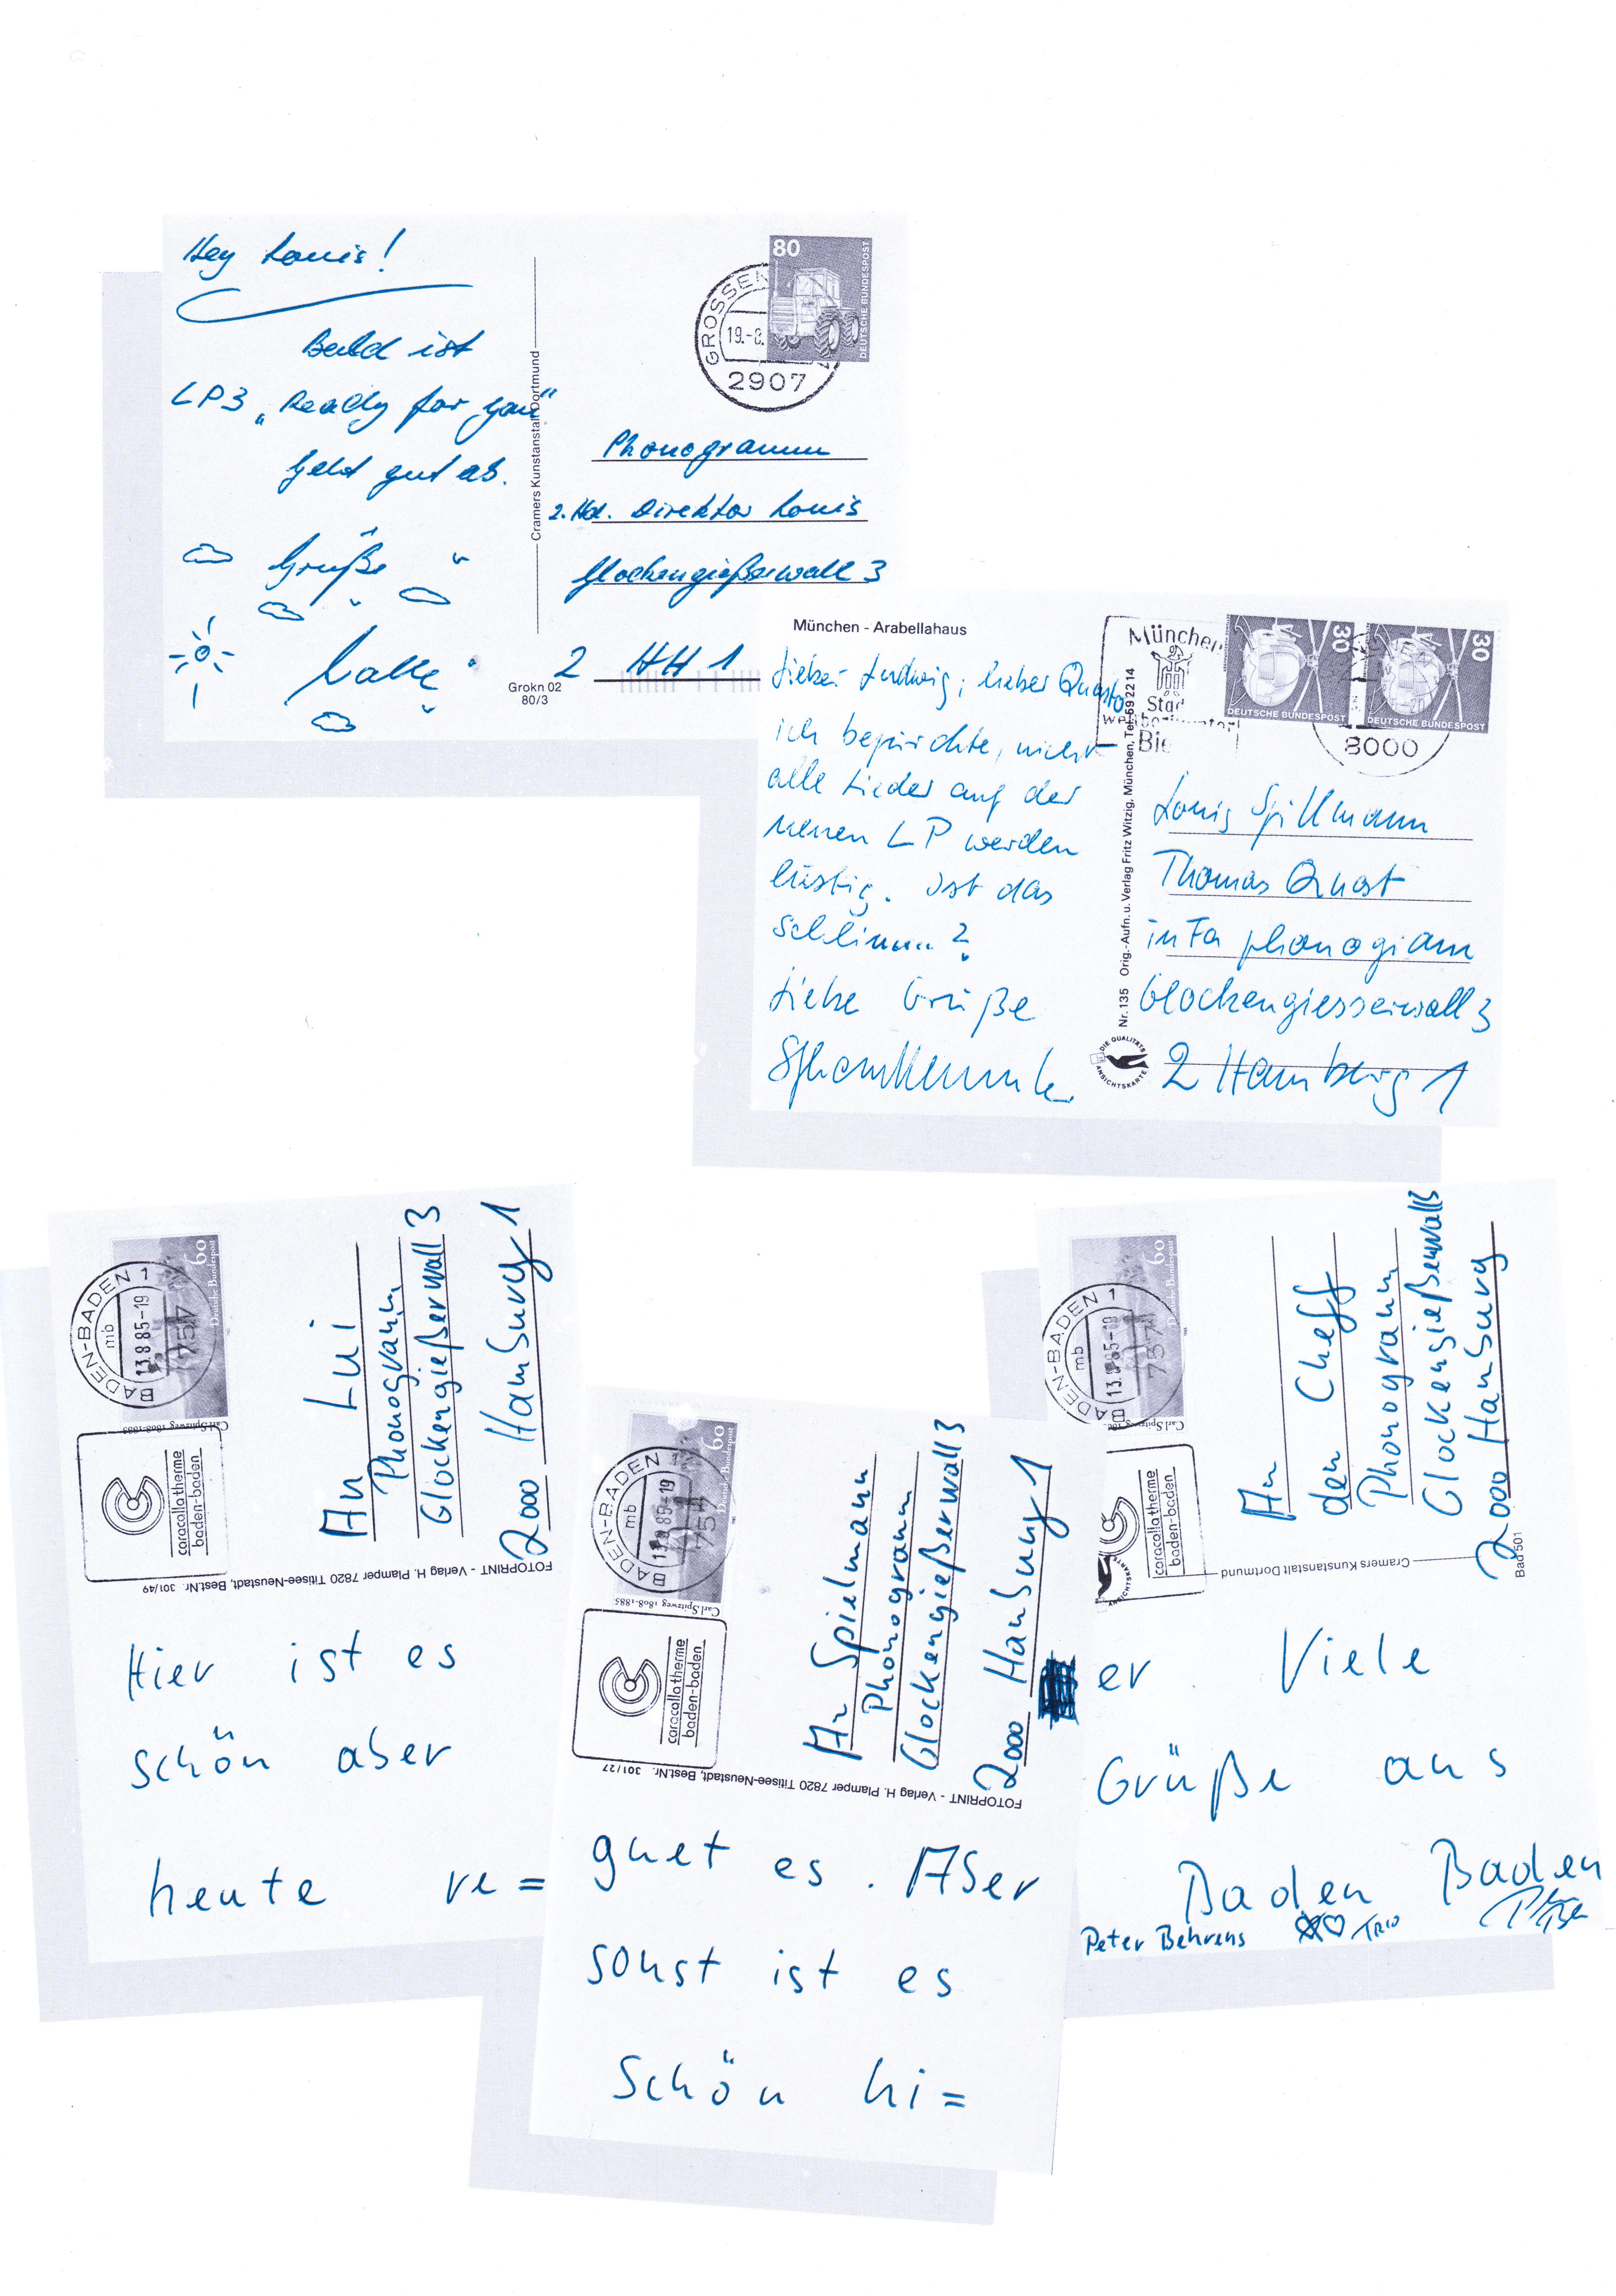 Hey Louis!
Bald ist
LP3 „Ready for you“
Geht gut ab.
Grüße
Calle
Cramers Kunstanstalt Dortmund
Grokn 02
80/3
80
DEUTSCHE BUNDESPOST
GROSSEN
19.-8.
2907
Phonogramm
z. Hd. Direktor Louis
Glockengießerwall 3
2 HH 1
München - Arabellahaus
Lieber Ludwig, lieber Quasto
ich befürchte, nicht
alle Lieder auf der
neuen LP werden
lustig. Ist das
schlimm?
Liebe Grüße
Nr. 135 Orig.-Aufn. u. Verlag Fritz Witzig, München, Tel. 59 22 14
DIE QUALITÄTS
ANSICHTSKARTE
München
Stad
Bie
30
DEUTSCHE BUNDESPOST
30
DEUTSCHE BUNDESPOST
8000
Louis Spillmann
Thomas Quast
in Fa phonogram
Glockengiesserwall 3
2 Hamburg 1
60
Deutsche Bundespost
Carl Spitzweg 1808-1885
BADEN-BADEN 1
mb
13.8.85-19
757
caracalla therme
baden-baden
An Lui
Phonogramm
Glockengießerwall 3
2000 Hamburg 1
FOTOPRINT - Verlag H. Plamper 7820 Titisee-Neustadt, Best.Nr. 301/49
Hier ist es
schön aber
heute re=
60
Deutsche Bundespost
Carl Spitzweg 1808-1885
BADEN-BADEN 1
mb
13.8.85-19
757
caracalla therme
baden-baden
An Spielmann
Phonogramm
Glockengießerwall 3
2000 Hamburg 1
FOTOPRINT - Verlag H. Plamper 7820 Titisee-Neustadt, Best.Nr. 301/27
gnet es. Aber
sonst ist es
schön hi=
60
Carl Spitzweg
BADEN-BADEN 1
mb
13.8.85-19
757
caracalla therme
baden-baden
ANSICHTSKARTE
An
den Cheff
Phonogramm
Glockengießerwall 3
2000 Hamburg
Cramers Kunstanstalt Dortmund
Bad 501
er Viele
Grüße aus
Baden Baden
Peter Behrens TRIO